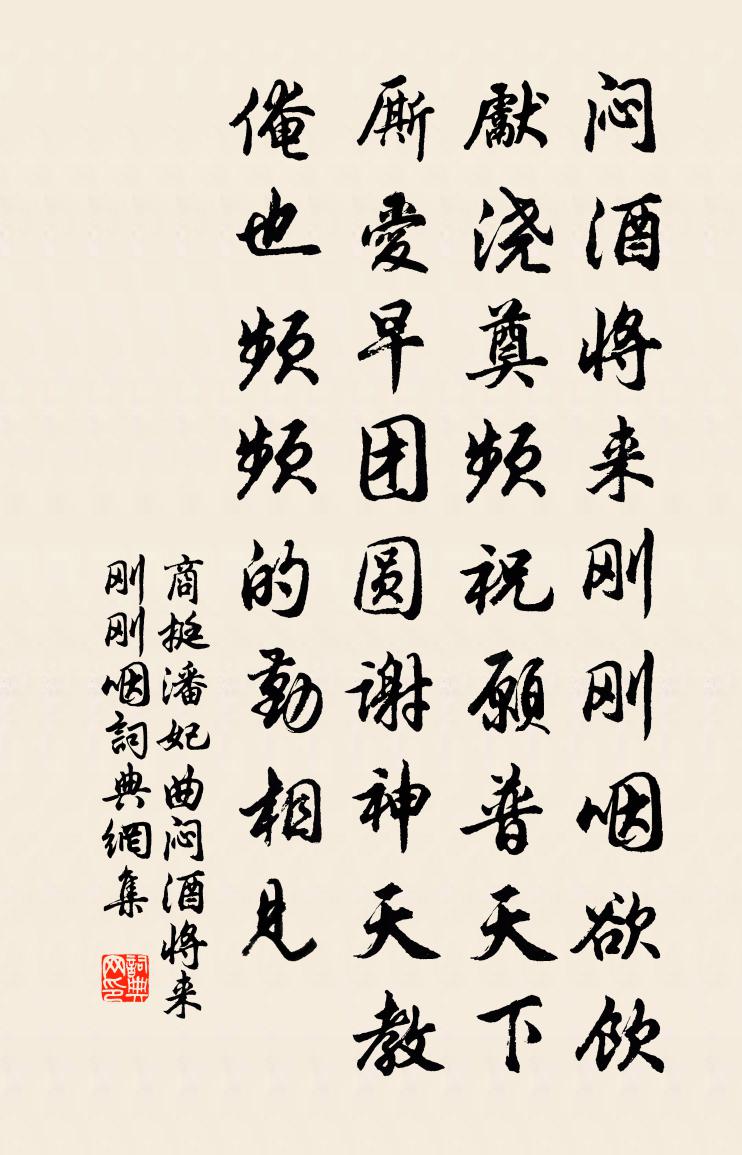 闷酒将来刚刚咽欲饮
獻浇奠频祝愿普天下
厮愛早团圆谢神天教
俺也频频的勤相见
商挺潘妃曲闷酒将来
刚刚咽詞典網集
詞典网印